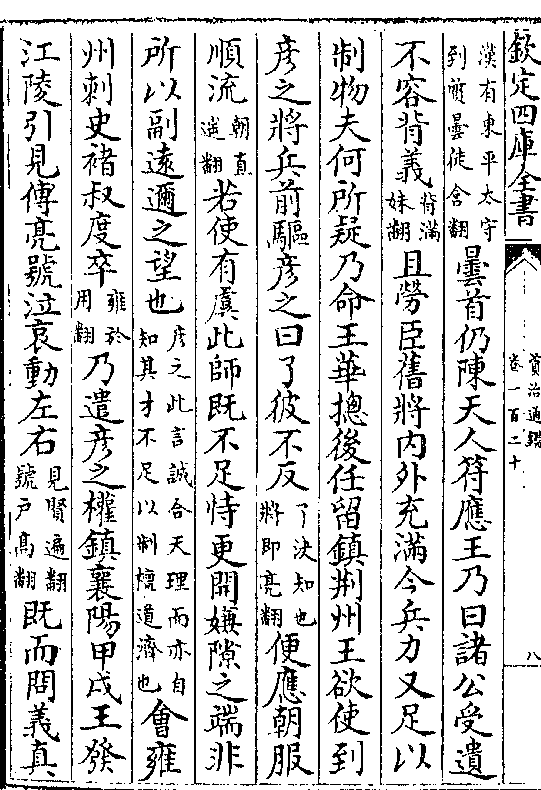 欽定四庫全書
資治通鑑
卷一百二十
八
漢有東平太守
到質曇徒含翻
曇首仍陳天人符應王乃曰諸公受遺
不容背義
背蒲
妹翻
且勞臣舊將内外充滿今兵力又足以
制物夫何所疑乃命王華摠後任留鎮荆州王欲使到
彦之將兵前驅彦之曰了彼不反
了決知也
將即亮翻
便應朝服
順流
朝直
遙翻
若使有虞此師既不足恃更開嫌隙之端非
所以副逺邇之望也
彦之此言誠合天理而亦自
知其才不足以制檀道濟也
會雍
州刺史褚叔度卒
雍於
用翻
乃遣彦之權鎮襄陽甲戌王發
江陵引見傅亮號泣哀動左右
見賢遍翻
號户高翻
既而問義真